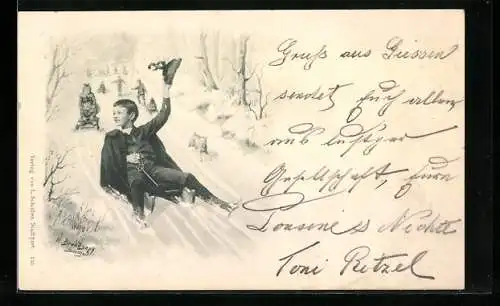 Gruß aus Giessen
sendet Euch allen
aus lustiger
Gesellschaft, Eure
Cousine & Nichte
Toni Retzel
Verlag von L. Schaller, Stuttgart. 155